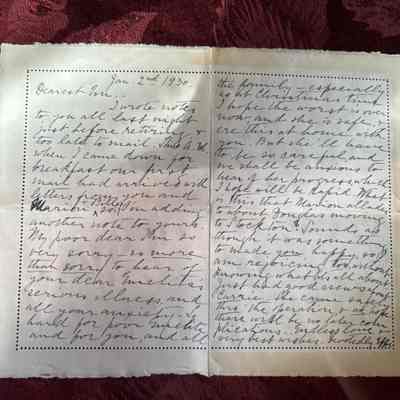 Jan 2nd 1930
Dearest
I wrote notes
to you all last night
just before retiring, &
too late to mail.
when I came down for
breakfast our first
mail had arrived with
letters from you and
Marion so I'm adding
another note to yours.
My poor dear I'm so
very sorry — so more
than sorry to hear of
your dear
serious illness and
all your anxiety — so
hard for poor
and for you, and all
the family — especially
as at Christmas time
I hope the worst is over
now, and she is safe
ere this at home with
you. But she'll have
to be so careful, and
we shall be anxious to
hear of her progress which
I hope will be rapid. What
is this that Marion alludes
to about Douglas moving
to Stockton? Sounds as
though it was something
to make you happy, so I
am rejoicing too without
knowing what it's all about
Just had good news from
Carrie. She came safely
thro' the operation, & we hope
there will be no later com-
plications. Endless love &
very best wishes. Devotedly